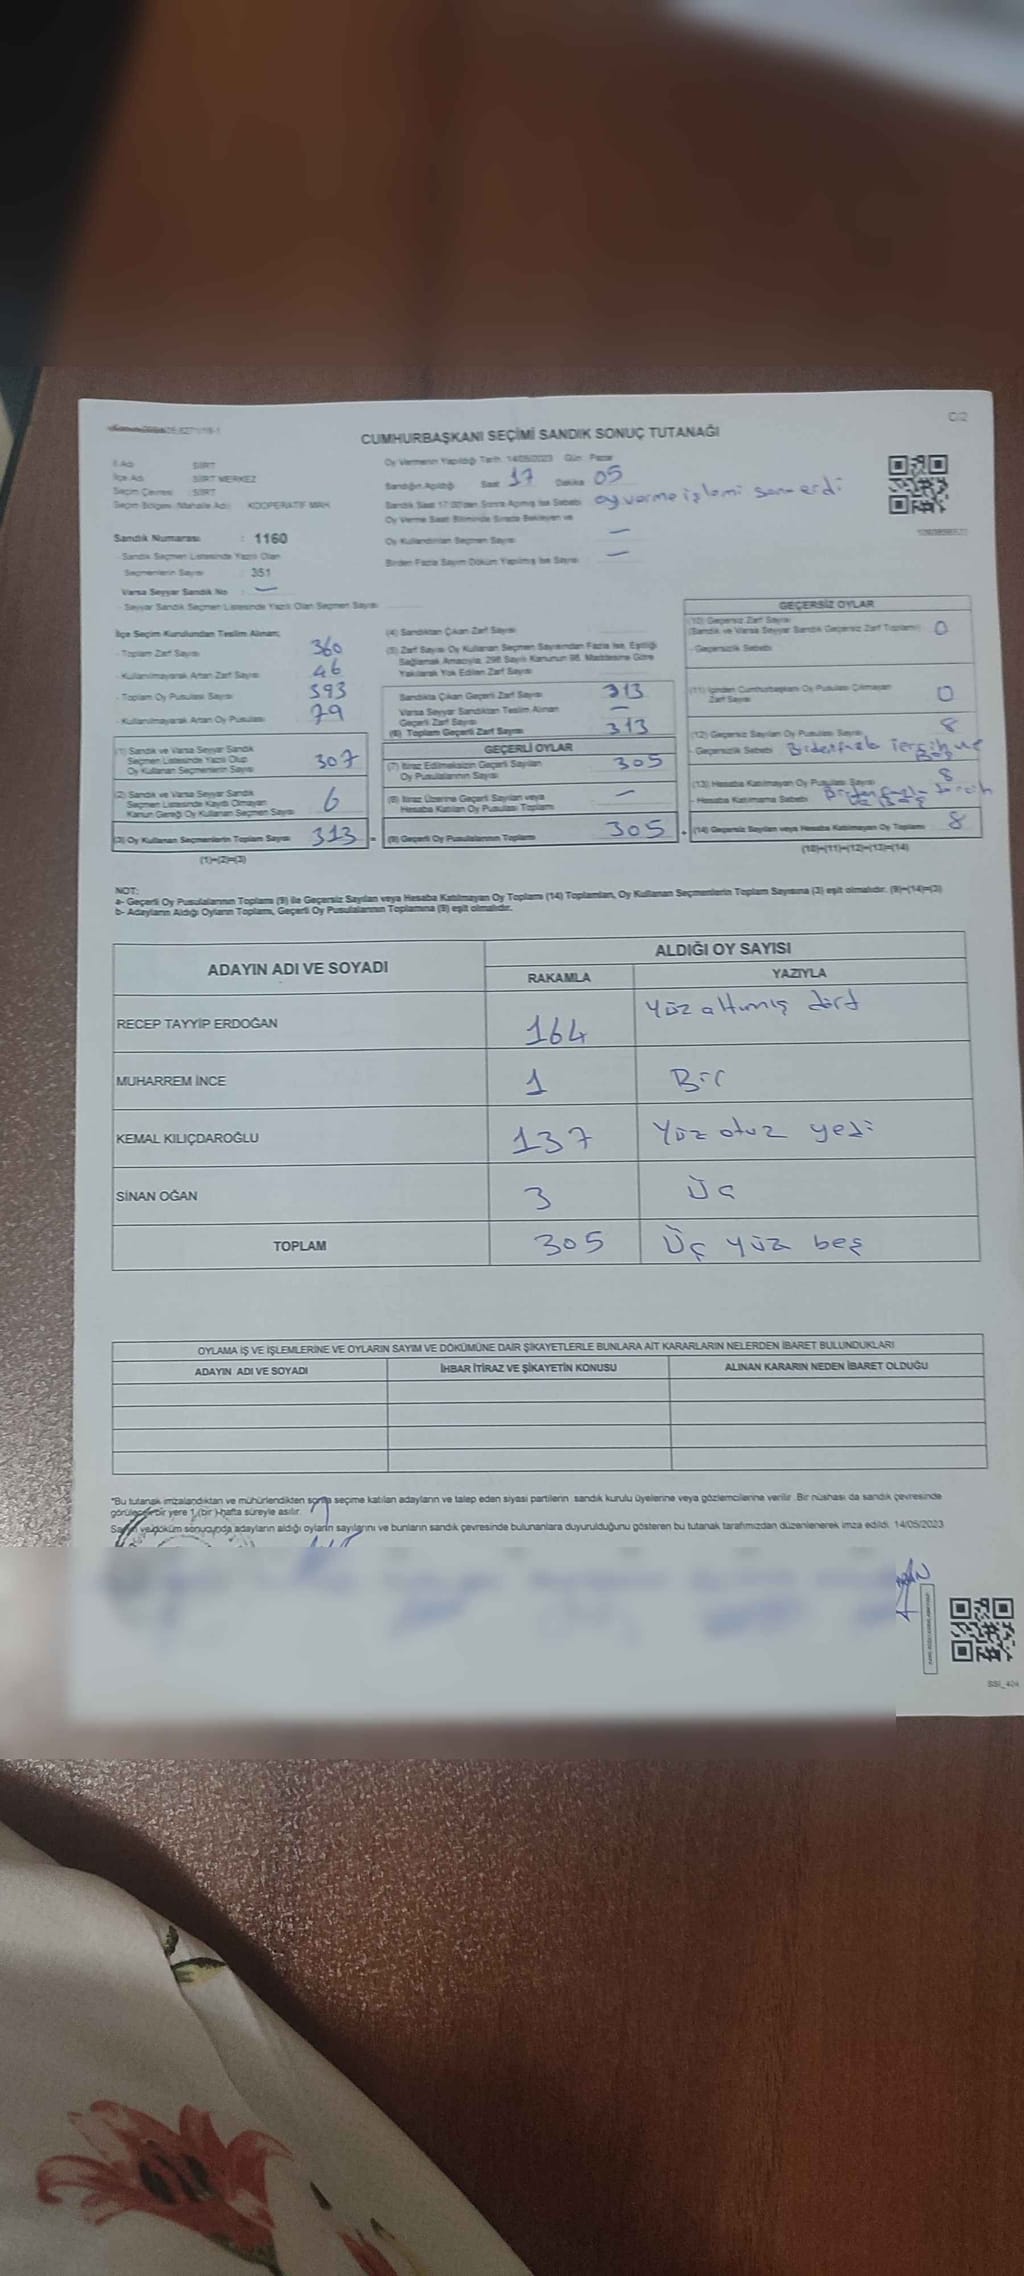 C/2
CUMHURBAŞKANI SEÇİMİ SANDIK SONUÇ TUTANAĞI
İl Adı : SİİRT
İlçe Adı : SİİRT MERKEZ
Seçim Çevresi : SİİRT
Seçim Bölgesi (Mahalle Adı) : KOOPERATİF MAH.
Sandık Numarası : 1160
- Sandık Seçmen Listesinde Yazılı Olan
Seçmenlerin Sayısı : 351
Varsa Seyyar Sandık No : —
- Seyyar Sandık Seçmen Listesinde Yazılı Olan Seçmen Sayısı
Oy Vermenin Yapıldığı Tarih: 14/05/2023 Gün: Pazar
Sandığın Açıldığı Saat 17 Dakika 05
Sandık Saat 17.00'den Sonra Açılmış İse Sebebi oy verme işlemi sona erdi
Oy Verme Saati Bitiminde Sırada Bekleyen ve
Oy Kullandırılan Seçmen Sayısı —
Birden Fazla Sayım Döküm Yapılmış İse Sayısı —
İlçe Seçim Kurulundan Teslim Alınan;
- Toplam Zarf Sayısı 360
- Kullanılmayarak Artan Zarf Sayısı 46
- Toplam Oy Pusulası Sayısı 393
- Kullanılmayarak Artan Oy Pusulası 79
(1) Sandık ve Varsa Seyyar Sandık
Seçmen Listesinde Yazılı Olup
Oy Kullanan Seçmenlerin Sayısı 307
(2) Sandık ve Varsa Seyyar Sandık
Seçmen Listesinde Kaydı Olmayan
Kanun Gereği Oy Kullanan Seçmen Sayısı 6
(3) Oy Kullanan Seçmenlerin Toplam Sayısı 313 =
(1)+(2)=(3)
(4) Sandıktan Çıkan Zarf Sayısı
(5) Zarf Sayısı Oy Kullanan Seçmen Sayısından Fazla İse, Eşitliği
Sağlamak Amacıyla, 298 Sayılı Kanunun 98. Maddesine Göre
Yakılarak Yok Edilen Zarf Sayısı
Sandıkta Çıkan Geçerli Zarf Sayısı 313
Varsa Seyyar Sandıktan Teslim Alınan
Geçerli Zarf Sayısı —
(6) Toplam Geçerli Zarf Sayısı 313
GEÇERLİ OYLAR
(7) İtiraz Edilmeksizin Geçerli Sayılan
Oy Pusulalarının Sayısı 305
(8) İtiraz Üzerine Geçerli Sayılan veya
Hesaba Katılan Oy Pusulası Toplamı —
(9) Geçerli Oy Pusulalarının Toplamı 305 +
GEÇERSİZ OYLAR
(10) Geçersiz Zarf Sayısı
(Sandık ve Varsa Seyyar Sandık Geçersiz Zarf Toplamı) 0
- Geçersizlik Sebebi
(11) İçinden Cumhurbaşkanı Oy Pusulası Çıkmayan
Zarf Sayısı 0
(12) Geçersiz Sayılan Oy Pusulası Sayısı 8
- Geçersizlik Sebebi Birden fazla Tercih ve
Boş
(13) Hesaba Katılmayan Oy Pusulası Sayısı 8
- Hesaba Katılmama Sebebi Birden fazla tercih
ve Boş
(14) Geçersiz Sayılan veya Hesaba Katılmayan Oy Toplamı 8
(10)+(11)+(12)+(13)=(14)
NOT:
a- Geçerli Oy Pusulalarının Toplamı (9) ile Geçersiz Sayılan veya Hesaba Katılmayan Oy Toplamı (14) Toplamları, Oy Kullanan Seçmenlerin Toplam Sayısına (3) eşit olmalıdır. (9)+(14)=(3)
b- Adayların Aldığı Oyların Toplamı, Geçerli Oy Pusulalarının Toplamına (9) eşit olmalıdır.
ADAYIN ADI VE SOYADI
ALDIĞI OY SAYISI
RAKAMLA YAZIYLA
RECEP TAYYİP ERDOĞAN 164 Yüz altmış dört
MUHARREM İNCE 1 Bir
KEMAL KILIÇDAROĞLU 137 Yüz otuz yedi
SİNAN OĞAN 3 Üç
TOPLAM 305 Üç yüz beş
OYLAMA İŞ VE İŞLEMLERİNE VE OYLARIN SAYIM VE DÖKÜMÜNE DAİR ŞİKAYETLERLE BUNLARA AİT KARARLARIN NELERDEN İBARET BULUNDUKLARI
ADAYIN ADI VE SOYADI İHBAR İTİRAZ VE ŞİKAYETİN KONUSU ALINAN KARARIN NEDEN İBARET OLDUĞU
*Bu tutanak imzalandıktan ve mühürlendikten sonra seçime katılan adayların ve talep eden siyasi partilerin sandık kurulu üyelerine veya gözlemcilerine verilir. Bir nüshası da sandık çevresinde
görülecek bir yere 1 (bir ) hafta süreyle asılır.
Sayım ve döküm sonucunda adayların aldığı oyların sayılarını ve bunların sandık çevresinde bulunanlara duyurulduğunu gösteren bu tutanak tarafımızdan düzenlenerek imza edildi. 14/05/2023
SSI_404